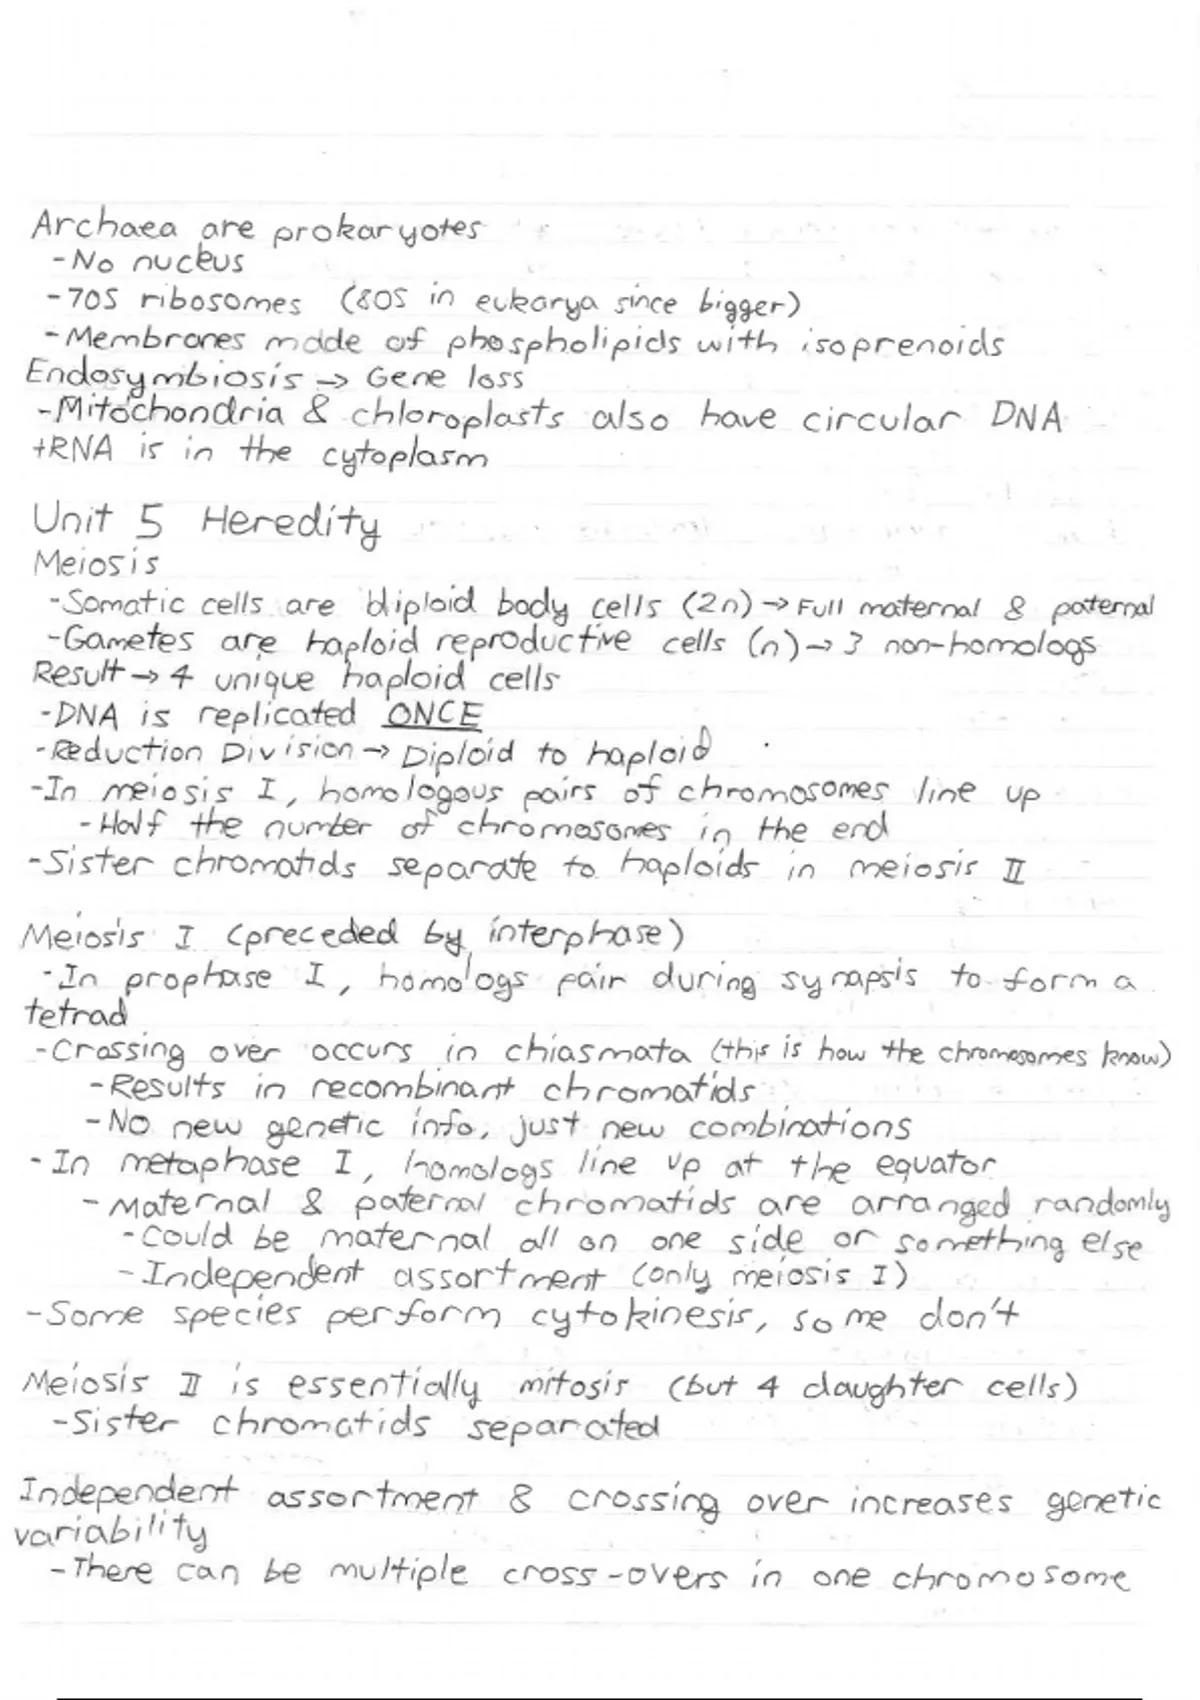 Archaea are prokaryotes
-No nucleus
-70S ribosomes (80S in eukarya since bigger)
-Membranes made of phospholipids with isoprenoids
Endosymbiosis → Gene loss
-Mitochondria & chloroplasts also have circular DNA
tRNA is in the cytoplasm
Unit 5 Heredity
Meiosis
-Somatic cells are diploid body cells (2n) → Full maternal & paternal
-Gametes are haploid reproductive cells (n) → 3 non-homologs
Result → 4 unique haploid cells
-DNA is replicated ONCE
-Reduction Division → Diploid to haploid
-In meiosis I, homologous pairs of chromosomes line up
-Half the number of chromosomes in the end
-Sister chromatids separate to haploids in meiosis II
Meiosis I (preceded by interphase)
-In prophase I, homologs pair during synapsis to form a
tetrad
-Crossing over occurs in chiasmata (this is how the chromosomes know)
-Results in recombinant chromatids
-No new genetic info, just new combinations
-In metaphase I, homologs line up at the equator
-Maternal & paternal chromatids are arranged randomly
-Could be maternal all on one side or something else
-Independent assortment (only meiosis I)
-Some species perform cytokinesis, some don't
Meiosis II is essentially mitosis (but 4 daughter cells)
-Sister chromatids separated
Independent assortment & crossing over increases genetic
variability
-There can be multiple cross-overs in one chromosome